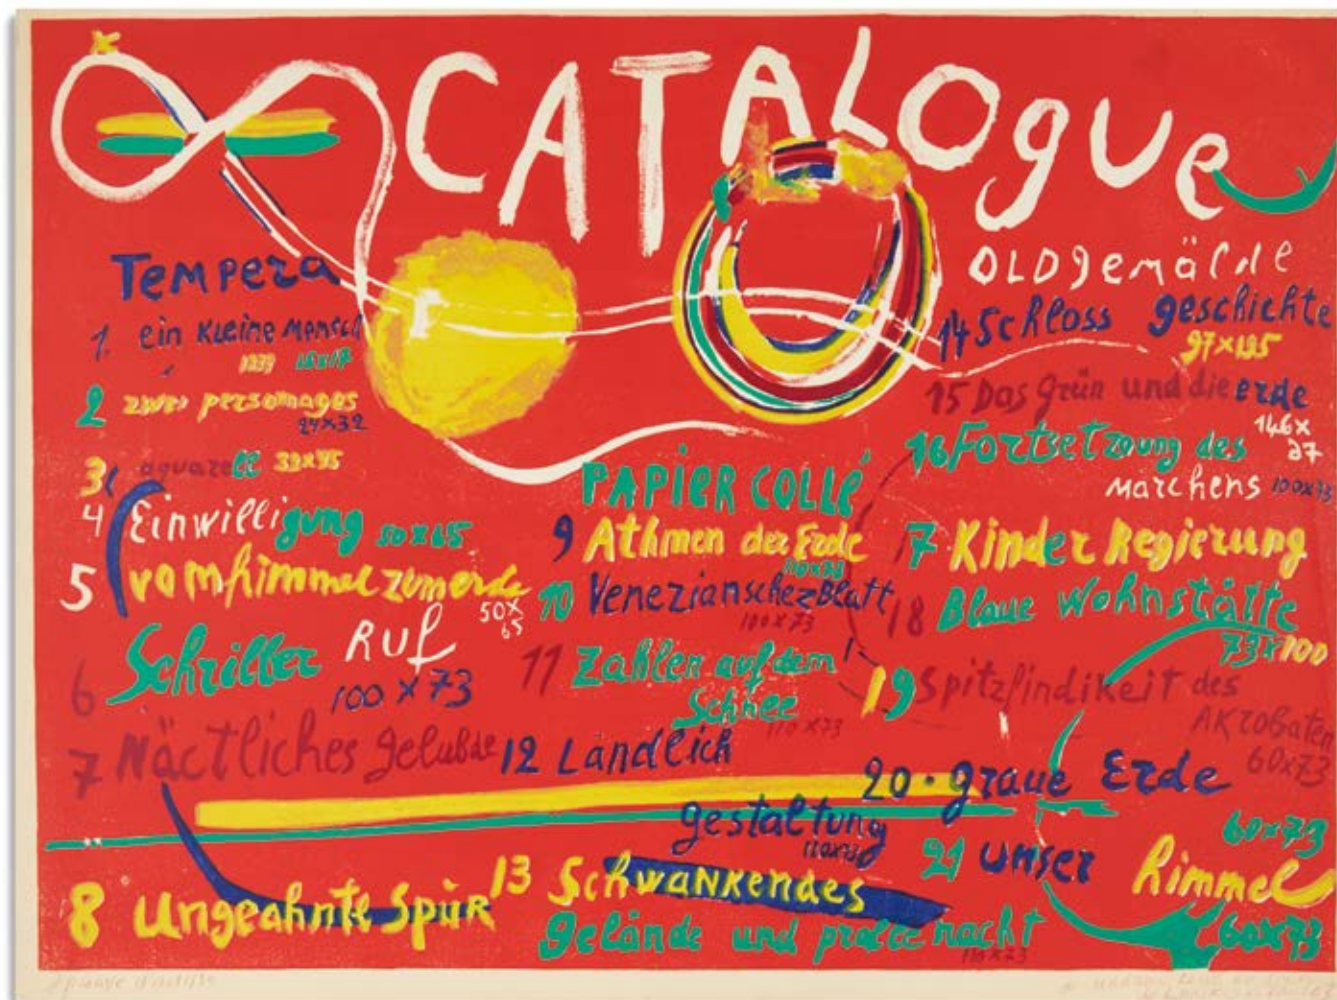 CATALOGUE
Tempera
1. ein kleine Mensch
1939 16x17
2 zwei personages
24x32
3 aquarelle 32x45
4 Einwilligung 50x65
5 vom himmel zum erde
50x
65
6 Schriller Ruf
100 x 73
7 Nächtliches gelubde
8 Ungeahnte Spur
PAPIER COLLÉ
9 Athmen der Erde
110x73
10 VenezianschezBlatt
100x73
11 Zahlen auf dem
Schnee
110x73
12 Ländlich
gestaltung
13 Schwankendes
gelände und nacht
110x73
OLDgemälde
14 Schloss geschichte
97x195
15 Das Grün und die erde
146x
97
16 Fortsetzung des
Märchens 100x73
17 Kinder Regierung
18 Blaue Wohnstätte
73x100
19 Spitzfindikeit des
AKrobaten
60x73
20. graue Erde
60x73
21 unser himmel
60x73